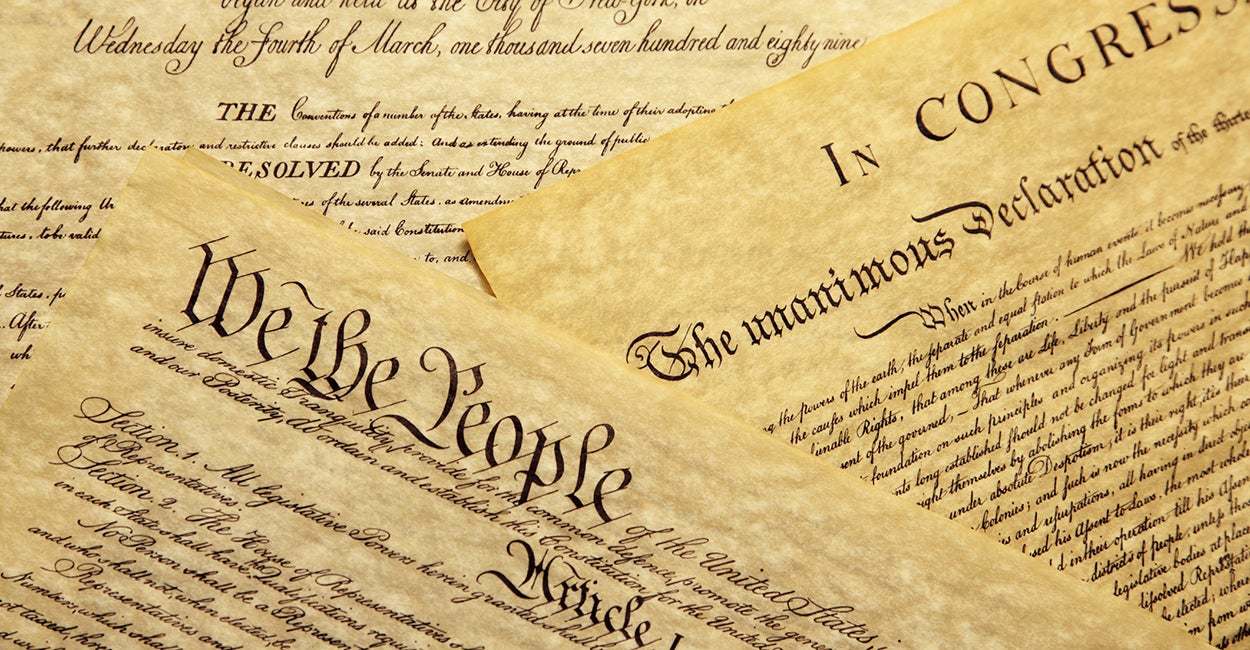 Begun and held at the City of New-York, on
Wednesday the Fourth of March, one thousand seven hundred and eighty nine
THE Conventions of a number of the States, having at the time of their adopting
powers, that further declaratory and restrictive clauses should be added: And as extending the ground of public
RESOLVED by the Senate and House of Repr
of the several States, as amendm
said Constitution
to, and
hat the following
tures, to be valid
States,
After
wh
We the People of the United States,
insure domestic Tranquility, provide for the common defence, promote the gene
and our Posterity, do ordain and establish this Constitution for the United
Article
Section. 1. All legislative Powers herein granted shall
of Representatives.
Section. 2. The House of Representatives
in each State shall have Qualifications requi
No Person shall be a Represen
and who shall not, when elected, be
Representatives and
Numbers, which shall
IN CONGRESS
The unanimous Declaration of the thirte
When in the Course of human events, it becomes necessary
g the powers of the earth, the separate and equal station to which the Laws of Nature and
the causes which impel them to the separation. We hold the
unable Rights, that among these are Life, Liberty and the pursuit of Hap
sent of the governed, — That whenever any Form of Government becomes
foundation on such principles and organizing its powers in such
nts long established should not be changed for light and trans
ight themselves by abolishing the forms to which they are
under absolute Despotism, it is their right, it is their
Colonies; and such is now the necessity which co
ies and usurpations, all having in direct object
used his Assent to Laws, the most whole
d in their operation till his Assen
districts of people, unless tho
legislative bodies at place
dissolved Representa
be elected; where
n from w